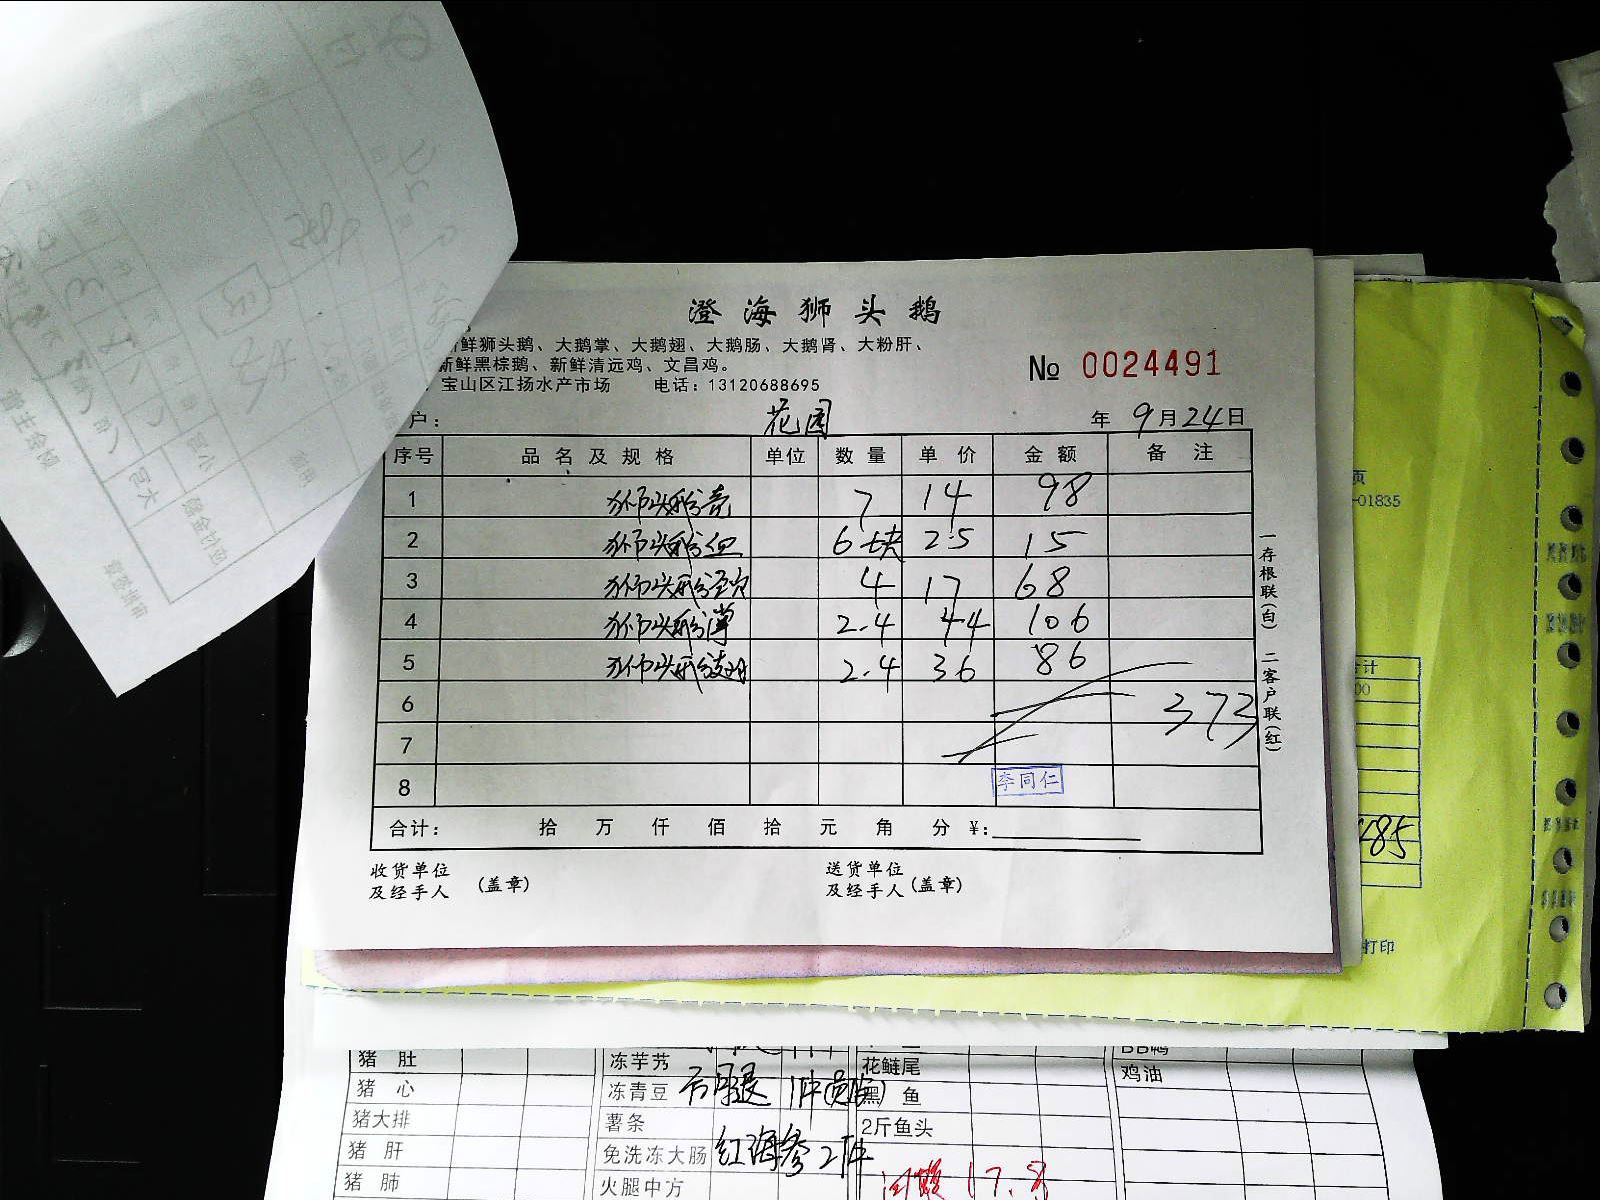 澄海狮头鹅
鲜狮头鹅、大鹅掌、大鹅翅、大鹅肠、大鹅肾、大粉肝、
新鲜黑棕鹅、新鲜清远鸡、文昌鸡。
宝山区江扬水产市场 电话：13120688695
№ 0024491
户： 花园 年 9月24日
序号 品名及规格 单位 数量 单价 金额 备注
1 狮头鹅 7 14 98
2 狮头鹅 6块 2.5 15
3 狮头鹅 4 17 68
4 狮头鹅掌 2.4 44 106
5 狮头鹅翅 2.4 36 86
6 373
7
8 李同仁
合计： 拾 万 仟 佰 拾 元 角 分 ¥:
收货单位
及经手人 (盖章)
送货单位
及经手人 (盖章)
一存根联(白) 二客户联(红)
页
-01835
计
00
485
打印
猪肚 冻芋艿 花鲢尾 BB鸭
猪心 冻青豆 后腿 1件 黑鱼 鸡油
猪大排 薯条 2斤鱼头
猪肝 免洗冻大肠 红海参2件
猪肺 火腿中方 17.8